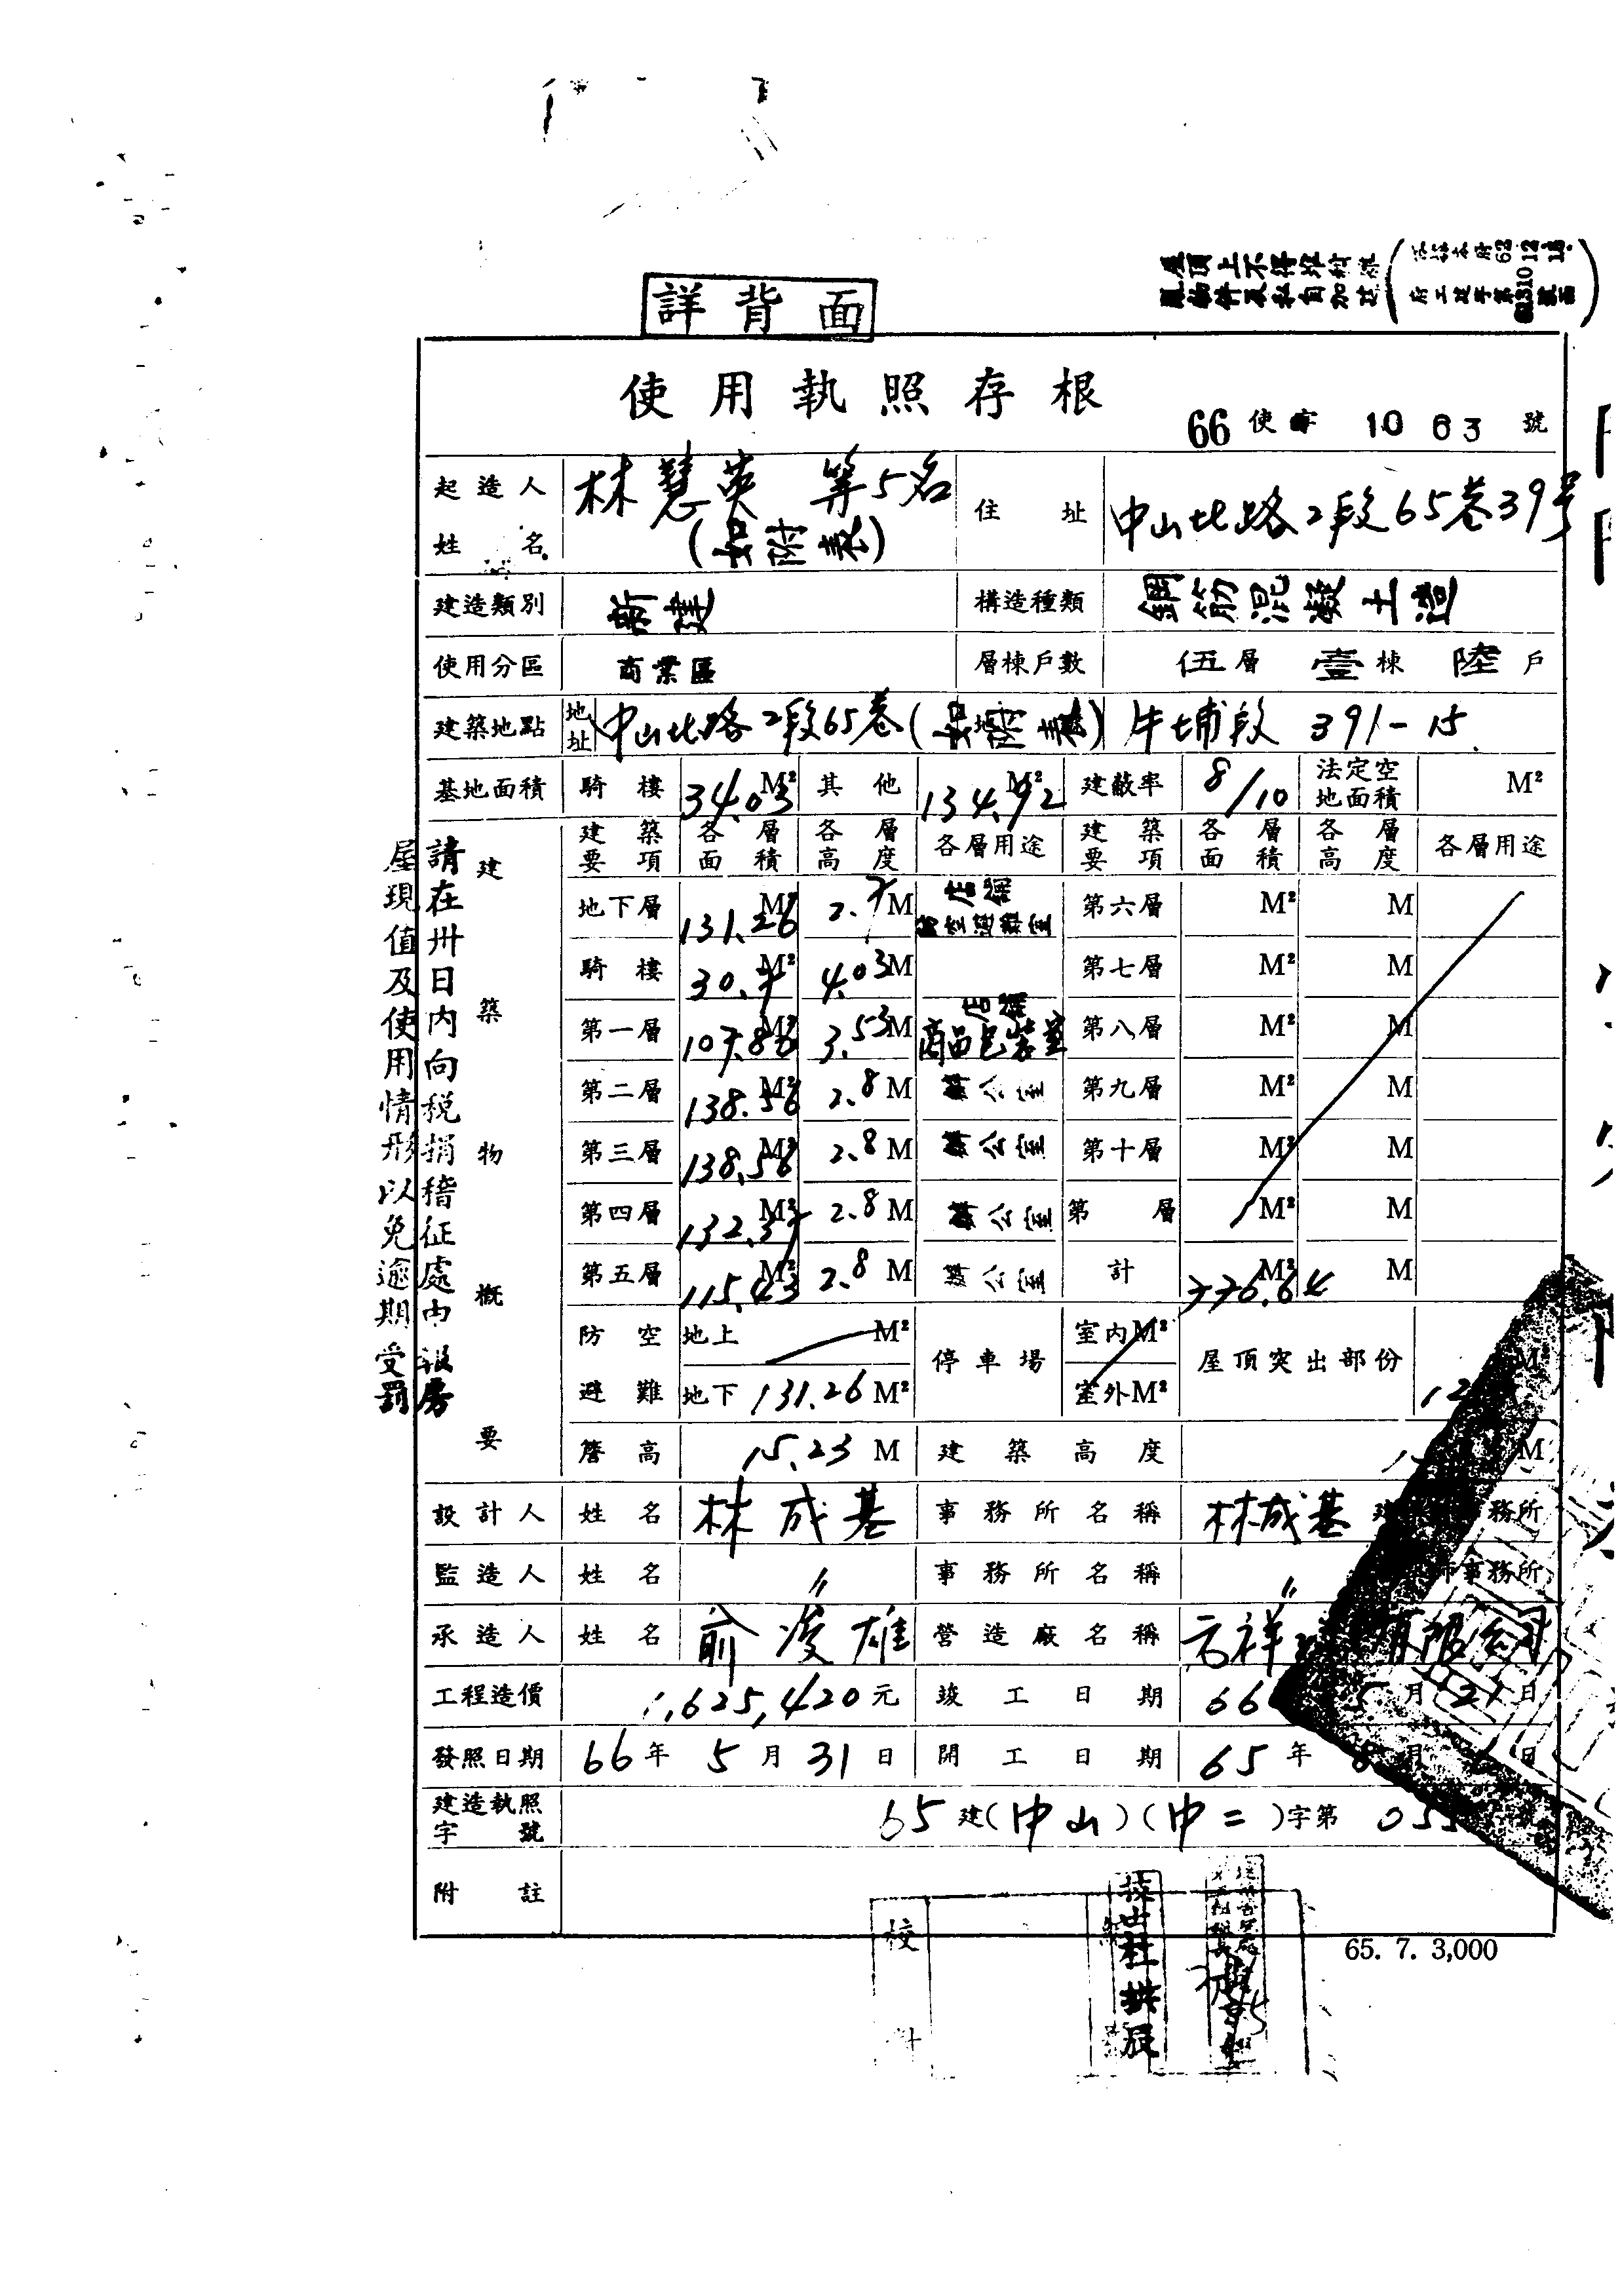 屋頂上不得堆
物件及私自加
詳背面
使用執照存根
66 使字 10 63 號
起造人姓名 林慧英 等5名
(如附表)
住址 中山北路2段65巷39号
建造類別 新建 構造種類 鋼筋混凝土造
使用分區 商業區 層棟戶數 伍層 壹棟 陸戶
建築地點 地址 中山北路2段65巷(如附表) 牛埔段 391-15
基地面積 騎樓 34.03 M² 其他 134.92 M² 建蔽率 8/10 法定空地面積 M²
建築物概要
建築要項 各層面積 各層高度 各層用途 建築要項 各層面積 各層高度 各層用途
地下層 131.26 M² 2.7 M 店鋪 防空避難室 第六層 M² M
騎樓 30.7 M² 4.03 M 第七層 M² M
第一層 107.86 M² 3.53 M 店鋪 商品包裝室 第八層 M² M
第二層 138.56 M² 2.8 M 辦公室 第九層 M² M
第三層 138.56 M² 2.8 M 辦公室 第十層 M² M
第四層 132.37 M² 2.8 M 辦公室 第 層 M² M
第五層 115.43 M² 2.8 M 辦公室 計 776.64 M² M
防空避難 地上 M² 停車場 室內M² 屋頂突出部份 M²
地下 131.26 M² 室外M²
簷高 15.23 M 建築高度 M
設計人 姓名 林成基 事務所名稱 林成基 建 務所
監造人 姓名 〃 事務所名稱 〃 師事務所
承造人 姓名 俞俊雄 營造廠名稱 祥 有限公司
工程造價 1,625,420元 竣工日期 66 月21日
發照日期 66年5月31日 開工日期 65年8月 日
建造執照字號 65建(中山)(中二)字第 05
附註
請在卅日內向稅捐稽征處申報房
屋現值及使用情形以免逾期受罰
65. 7. 3,000
校